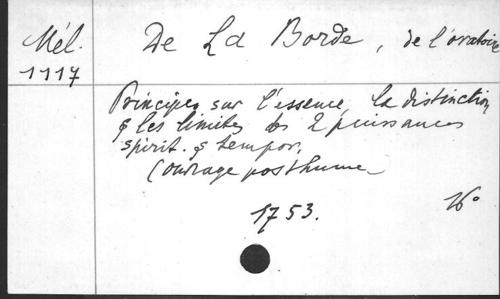 Mél. De La Borde, de l'oratoire
1117
Principes sur l'essence, la distinction
& les limites des 2 puissances
spirit. & tempor.
(ouvrage posthume
1753. 16°